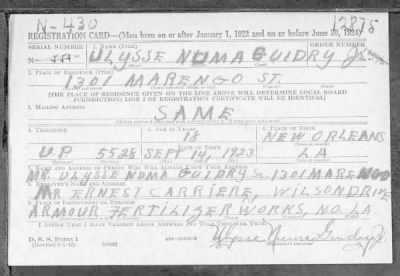 N-430 12875
REGISTRATION CARD—(Men born on or after January 1, 1922 and on or before June 30, 1924)
SERIAL NUMBER 1. NAME (Print) ORDER NUMBER
N ULYSSE NUMA GUIDRY JR.
2. PLACE OF RESIDENCE (Print)
1301 MARENGO ST.
[THE PLACE OF RESIDENCE GIVEN ON THE LINE ABOVE WILL DETERMINE LOCAL BOARD
JURISDICTION; LINE 2 OF REGISTRATION CERTIFICATE WILL BE IDENTICAL]
3. MAILING ADDRESS
SAME
4. TELEPHONE 5. AGE IN YEARS 6. PLACE OF BIRTH
18 NEW ORLEANS
DATE OF BIRTH
U.P. 5528 SEPT 14, 1923 LA
7. NAME AND ADDRESS OF PERSON WHO WILL ALWAYS KNOW YOUR ADDRESS
MR. ULYSSE NUMA GUIDRY SR. - 1301 MARENGO
8. EMPLOYER'S NAME AND ADDRESS
MR ERNEST CARRIERE, WILSON DRIVE
9. PLACE OF EMPLOYMENT OR BUSINESS
ARMOUR FERTILIZER WORKS, NO. LA.
I AFFIRM THAT I HAVE VERIFIED ABOVE ANSWERS AND THAT THEY ARE TRUE.
D. S. S. Form 1
Ulysse Numa Guidry Jr.